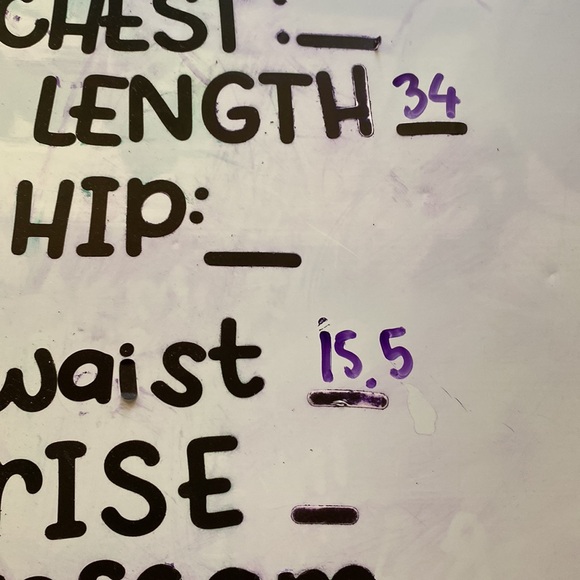 CHEST :
LENGTH 34
HIP:
waist 15.5
rISE